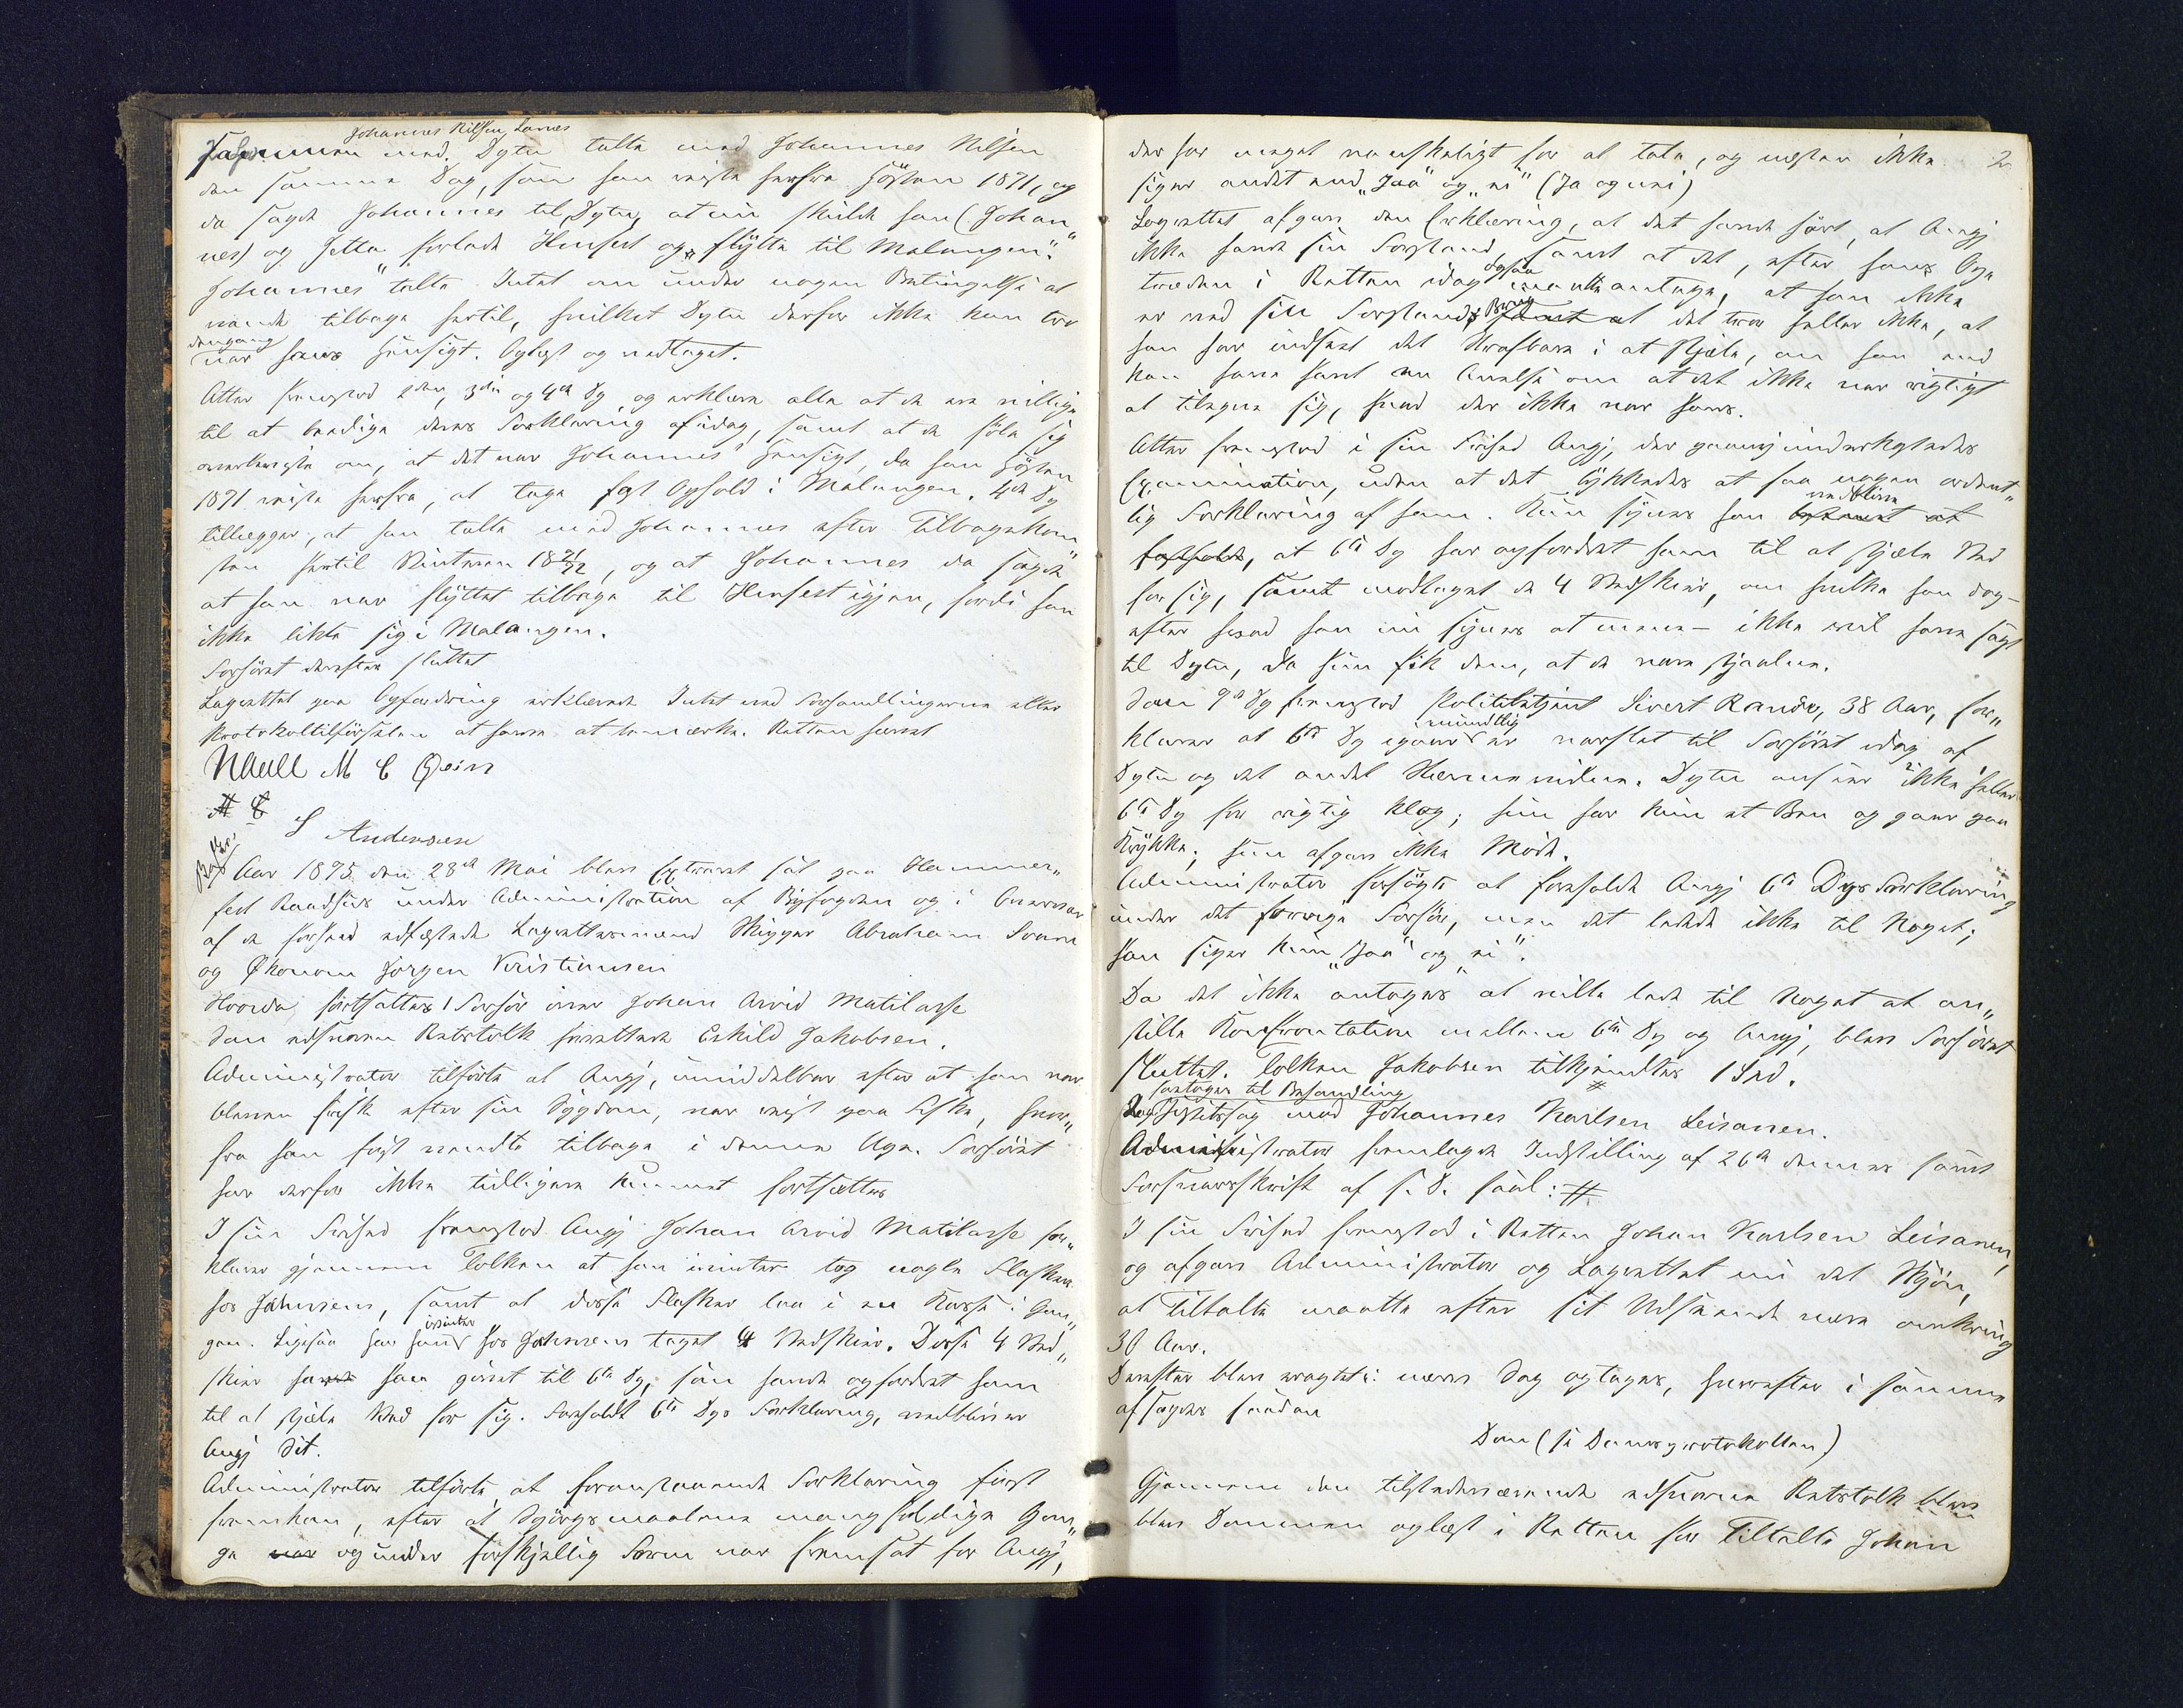 Johannes Nilsen Larnes
sammen med. Dytn talte med Johannes Nilsen
den samme Dag, som han reiste herfra Høsten 1871, og
da sagde Johannes til Dytn, at nu skulde han (Johan„
nes) og Jetta „forlade Hmfest og flytte til Malangen“.
Johannes talte Intet om under nogen Betingelse at
vende tilbage hertil, hvilket Dytn derfor ikke kan tro
dengang
var hans Hensigt. Oplæst og vedtaget.
Atter fremstod 2den, 3die og 4de Dg og erklære alle at de ere villige
til at beedige deres Forklaring af idag, samt at de føle sig
overbeviste om, at det var Johannes' Hensigt, da han Høsten
1871 reiste herfra, at tage fast Ophold i Malangen. 4de Dg
tillægger, at han talte med Johannes efter Tilbagekom„
sten hertil Vinteren 1871/72, og at Johannes da sagde
at han var flyttet tilbage til Hmfest igjen, fordi han
ikke likte sig i Malangen.
Forhøret derefter sluttet
Lagrettet paa Opfordring erklærede Intet ved Forhandlingerne eller
Protokoltilførselen at have at bemærke. Retten hævet
M C Qvien
S Andersen
Aar 1875 den 28de Mai blev Extraret sat paa Hammer„
fest Raadhus under Administration af Byfogden og i Overvær
af de forhen edfæstede Lagrettesmænd Skipper Abraham
og Økonom Jørgen Kristiansen
Hvorda fortsattes Forhør over Johan Arvid Matilasse
Den edsvorne Retstolk fremstod Eskild Jakobsen.
Administrator tilførte at Angj, umiddelbar efter at han var
bleven frisk efter sin Sygdom, var reist paa Fiske, hvor„
fra han først vendte tilbage i denne Uge. Forhøret
har derfor ikke tidligere kunnet fortsættes
I sin Frihed fremstod Angj Johan Arvid Matilasse for„
klarer gjennem Tolken at han ivinter tog nogle Flasker
hos Jahnsens, samt at disse Flasker laa i en Kasse i Gan„
gen. Ligesaa har han ivinter hos Jahnsens taget 4 Vedskier. Disse 4 Ved„
skier havde han givet til 6te Dg, som havde opfordret ham
til at stjæle Ved for sig. Foreholdt 6te Dgs Forklaring, vedbliver
Angj Sit.
Administrator tilførte at foranstaaende Forklaring først
fremkom, efter at Spørgsmaalene mangfoldige Gan„
ge var og under forskjellig Form var fremsat for Angj,
2
der har meget vanskeligt for at tale, og næsten ikke
siger andet end „Jaa“ og „ei“ (Ja og nei)
Lagrettet afgav den Erklæring, at det havde hørt, at Angj
ikke havde sin Forstand, samt at det, efter hans Op„
træden i Retten idag ogsaa maatte antage, at han ikke
er ved sin Forstands Brug samt at det troer heller ikke, at
han har indseet det Strafbare i at stjæle, om han end
kan have havt en Anelse om at det ikke var rigtigt
at tilegne sig, hvad der ikke var hans.
Atter fremstod i sin Frihed Angj, der paany underkastedes
Examination, uden at det lykkedes at faa nogen ordent„
lig Forklaring af ham. Kun synes han vedblive
fastholde, at 6te Dg har opfordret ham til at stjæle Ved
for sig, samt modtaget de 4 Vedskier, om hvilke han dog -
efter hvad han nu synes at mene - ikke skal have sagt
til Dytn, da hun fik dem, at de vare stjaalne.
Som 9de Dg fremstod Politibetjent Sivert Rande, 38 Aar, for„
klarer at 6te Dg igaar mundtlig er varslet til Forhøret idag af
Dytn og det andet Stævnevidne. Dytn anseer ikke heller
6te Dg for rigtig klog; hun har kun et Ben og gaar paa
Krykke; hun afgav ikke Møde.
Administrator forsøgte at foreholde Angj 6te Dgs Forklaring
under det forrige Forhør, men det ledede ikke til Noget;
han siger kun „Jaa“ og „ei“.
Da det ikke antoges at ville lede til Noget at an„
stille Konfrontation mellem 6te Dg og Angj, blev Forhøret
sluttet. Tolken Jakobsen tilkjendtes 1 Spd.
foretoges til Behandling
2. Justitssag mod Johannes Karlsen Leisanen.
Administrator fremlagde Indstilling af 26de dennes samt
Forsvarsskrift af s. D. saal: #
I sin Frihed fremstod i Retten Johan Karlsen Leisanen,
og afgav Administrator og Lagrettet nu det Skjøn,
at Tiltalte maatte efter sit Udseende være omkring
30 Aar.
Derefter blev Sag optagen, hvorefter i samme
afsagdes saadan
Dom (se Domsprotokollen)
Gjennem den tilstedeværende edsvorne Retstolk blev
blev Dommen oplæst i Retten for Tiltalte Johan